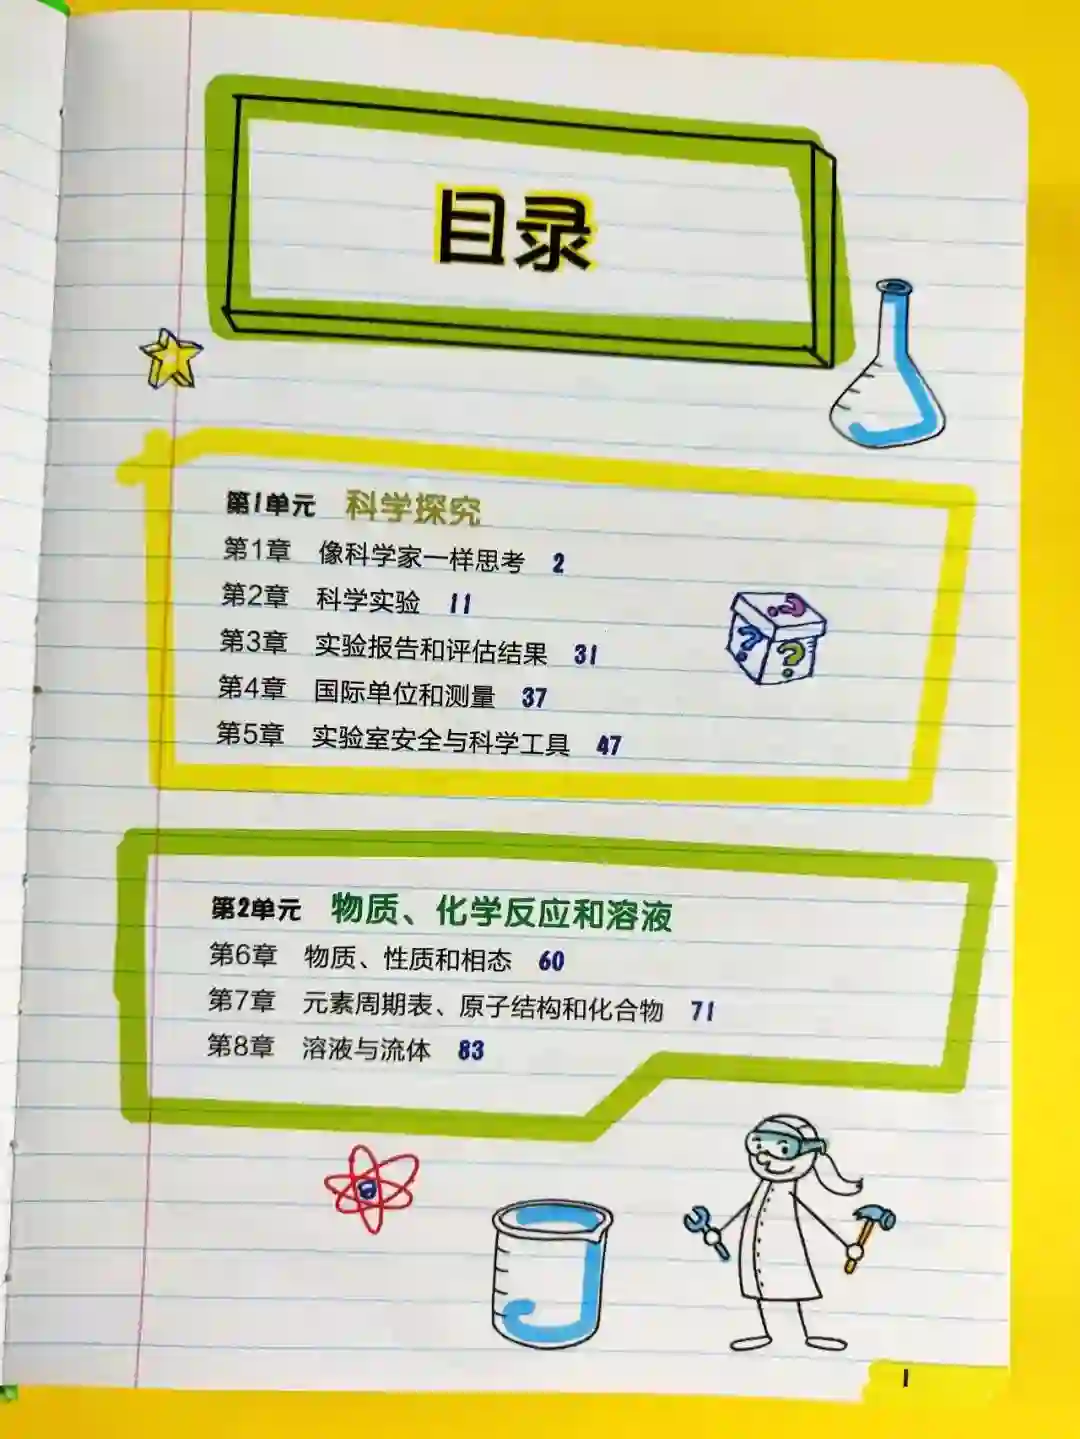 目录
第1单元 科学探究
第1章 像科学家一样思考 2
第2章 科学实验 11
第3章 实验报告和评估结果 31
第4章 国际单位和测量 37
第5章 实验室安全与科学工具 47
第2单元 物质、化学反应和溶液
第6章 物质、性质和相态 60
第7章 元素周期表、原子结构和化合物 71
第8章 溶液与流体 83
1